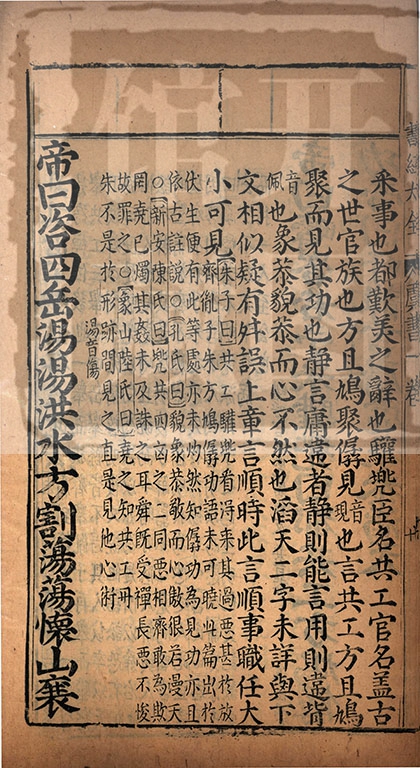 采事也都歎美之辭也驩兠臣名共工官名盖古
之世官族也方且鳩聚僝見音現也言共工方且鳩
聚而見其功也静言庸違者静則能言用則違背
音佩也象恭貌恭而心不然也滔天二字未詳與下
文相似疑有舛誤上章言順時此言順事職任大
小可見
朱子曰共工驩兠看浔来其過恶甚於放
齊胤子朱方鳩僝功語未可曉此篇出於
伏生便有此等處亦未灼然知僝功為見功亦且
依古註說○孔氏曰貌象恭敬而心傲很若漫天
○新安陳氏曰兠共四凶之二同恶相濟敢為欺
罔堯已燭其姦未及誅之耳舜既受禪長恶不悛
故罪之○象山陸氏曰堯之知共工丹
朱不是於形跡間見之直是見他心術
帝曰咨四岳湯湯洪水方割蕩蕩懷山襄
湯音傷